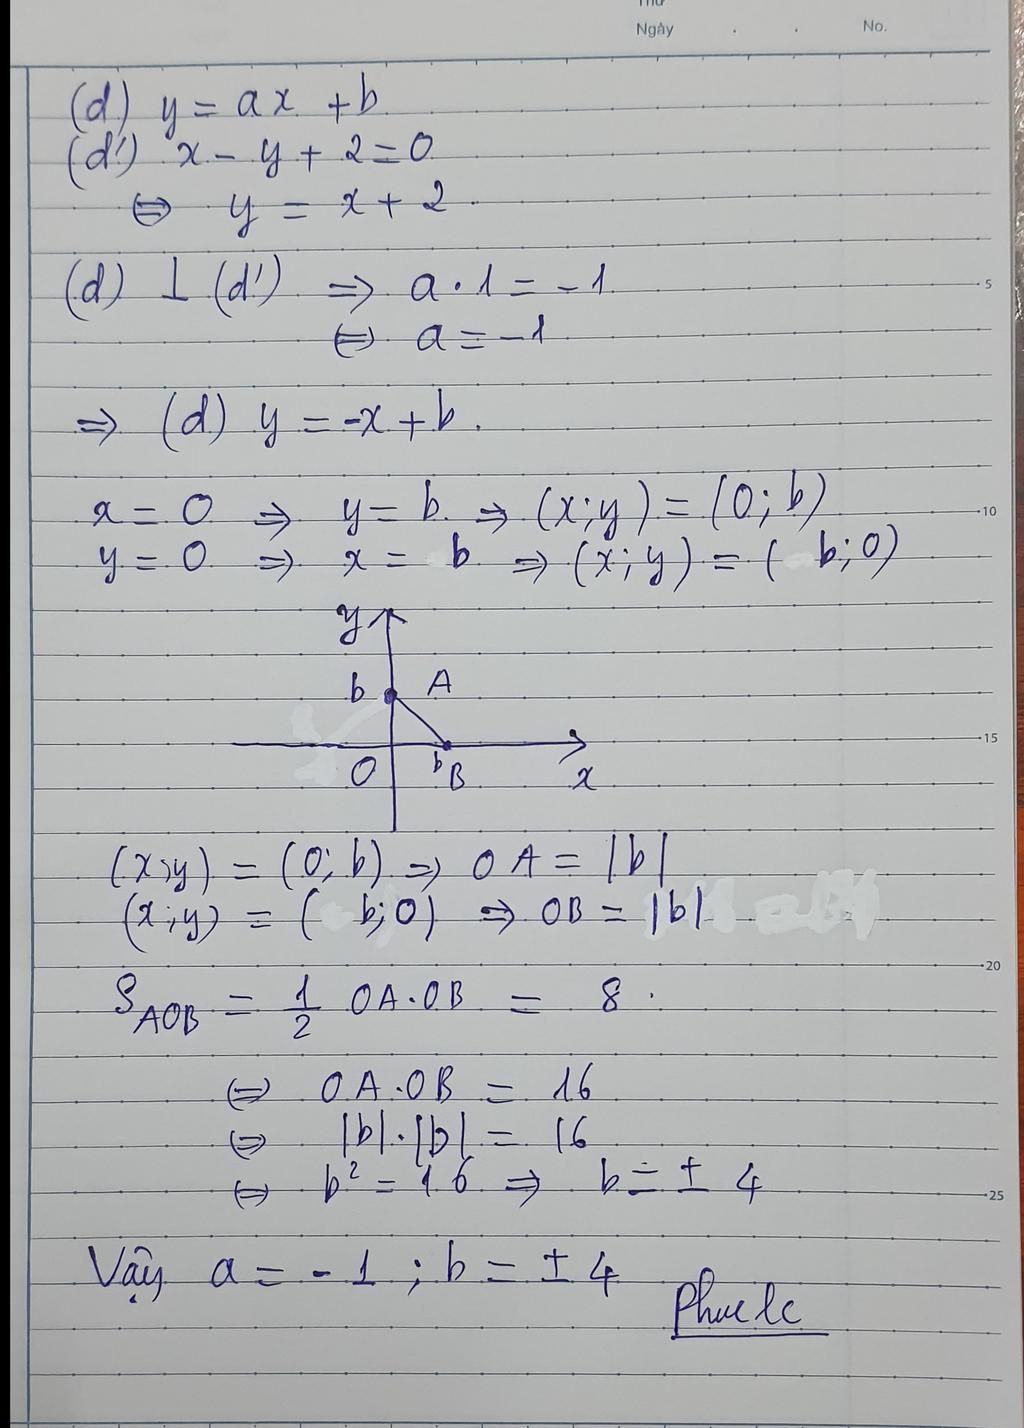 Thứ
Ngày . . No.
(d) y = ax + b
(d') x - y + 2 = 0
⇔ y = x + 2
(d) ⊥ (d') ⇒ a . 1 = -1
5
⇔ a = -1
⇒ (d) y = -x + b.
x = 0 ⇒ y = b ⇒ (x; y) = (0; b)
10
y = 0 ⇒ x = b ⇒ (x; y) = ( b; 0)
y
b A
15
O b B x
(x; y) = (0; b) ⇒ OA = |b|
(x; y) = ( b; 0) ⇒ OB = |b|
20
S_AOB = 1/2 OA.OB = 8.
⇔ OA.OB = 16
⇔ |b|.|b| = 16
⇔ b² = 16 ⇒ b = ± 4
25
Vậy a = -1 ; b = ± 4
Phuclc